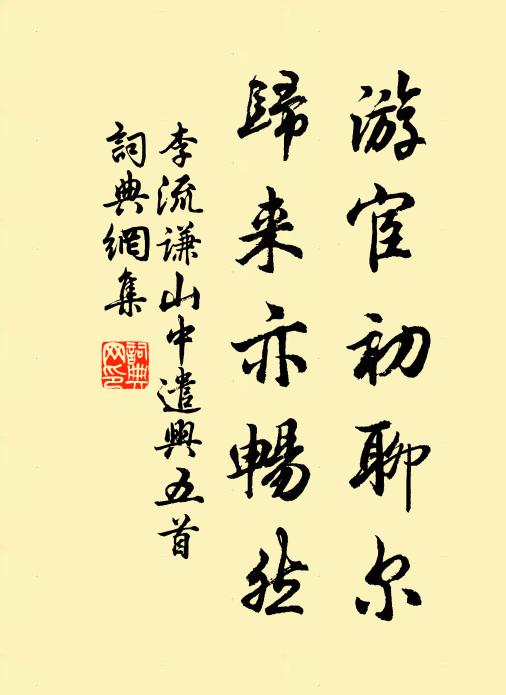 游宦初聊尔
歸来亦暢然
李流谦山中遣興五首
詞典網集
詞典网印